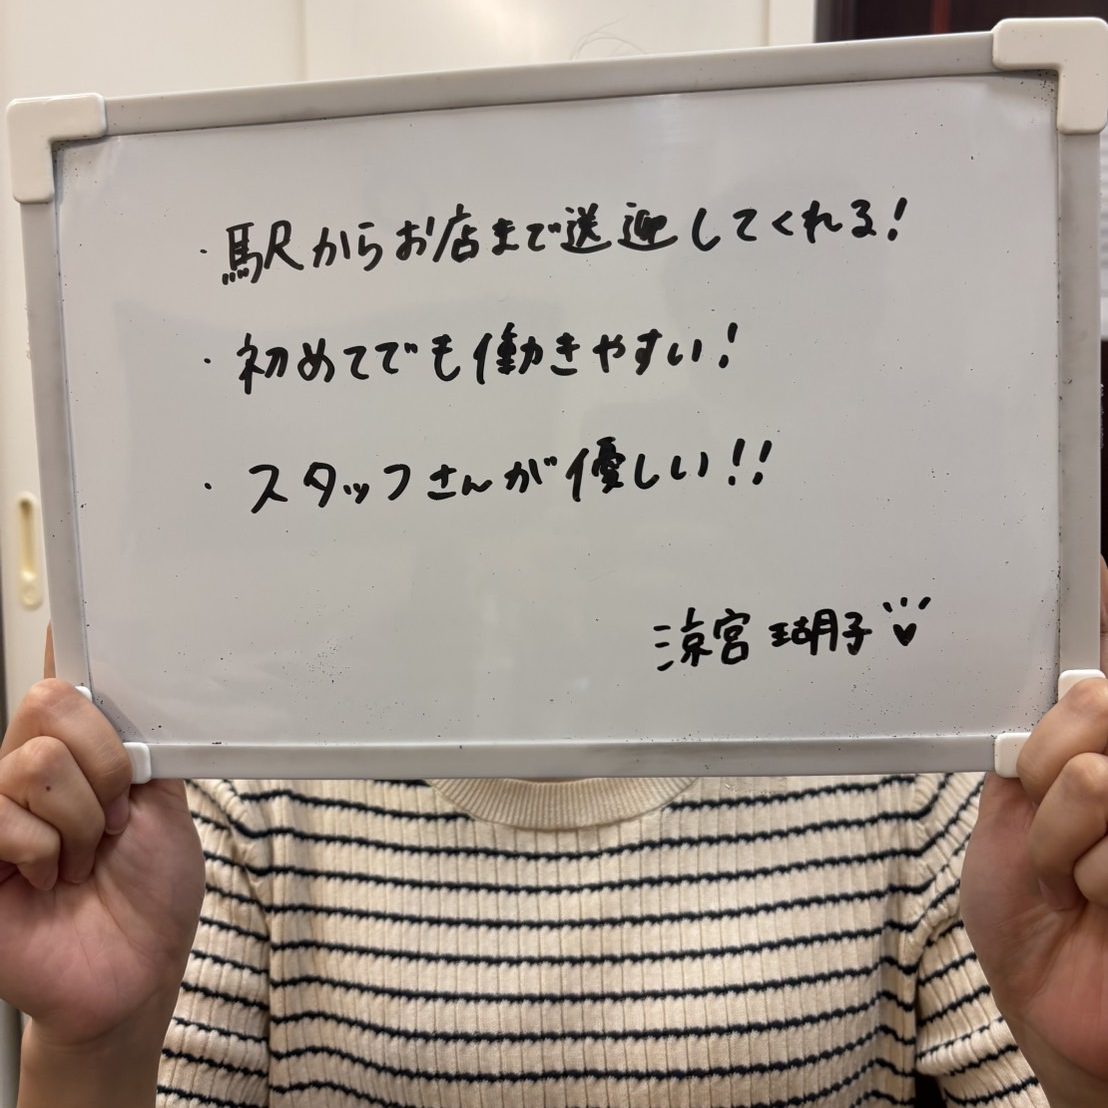 ・駅からお店まで送迎してくれる!
・初めてでも働きやすい!
・スタッフさんが優しい!!
涼宮 瑚子♥